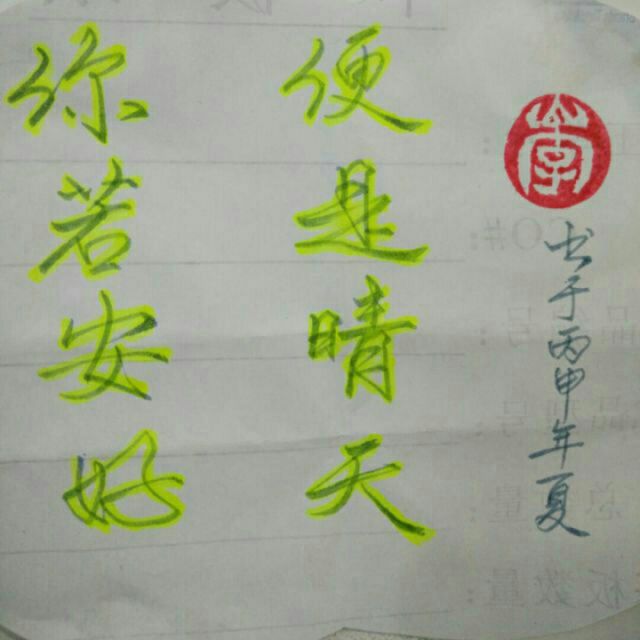 你若安好
便是晴天
书于丙甲年夏